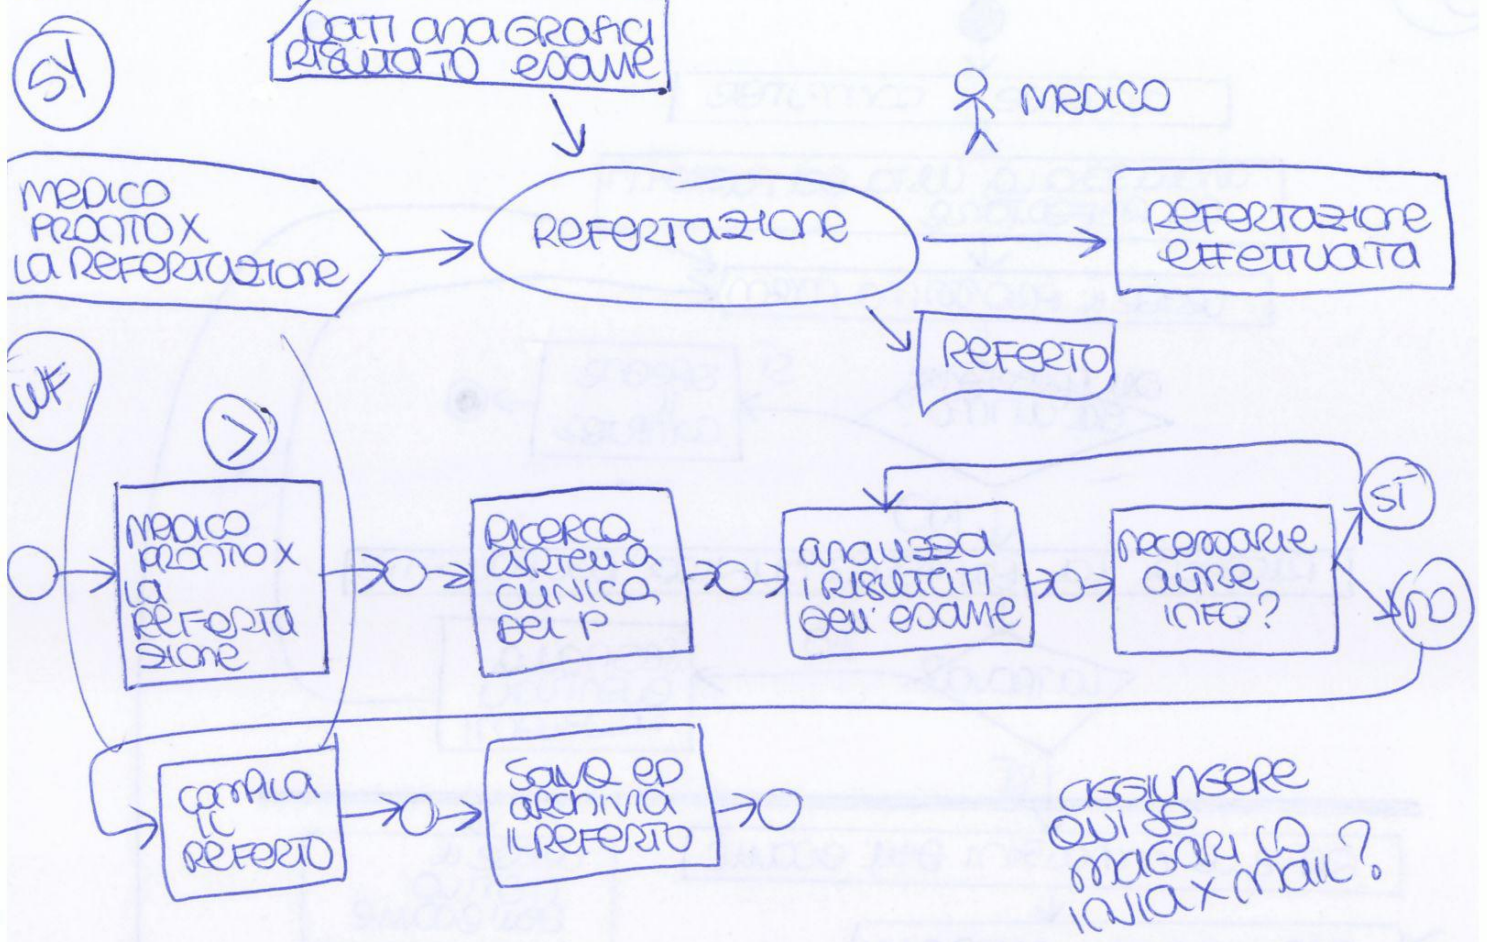 DATI ANAGRAFICI
RISULTATO ESAME
SY
MEDICO
MEDICO
PRONTO X
LA REFERTAZIONE
REFERTAZIONE
REFERTAZIONE
EFFETTUATA
REFERTO
WF
>
MEDICO
PRONTO X
LA
REFERTA
ZIONE
RICERCA
CARTELLA
CLINICA
DEL P
ANALIZZA
I RISULTATI
DELL'ESAME
NECESSARIE
ALTRE
INFO?
SÌ
NO
COMPILA
IL
REFERTO
SALVA ED
ARCHIVIA
IL REFERTO
AGGIUNGERE
QUI SE
MAGARI LO
INVIA X MAIL?